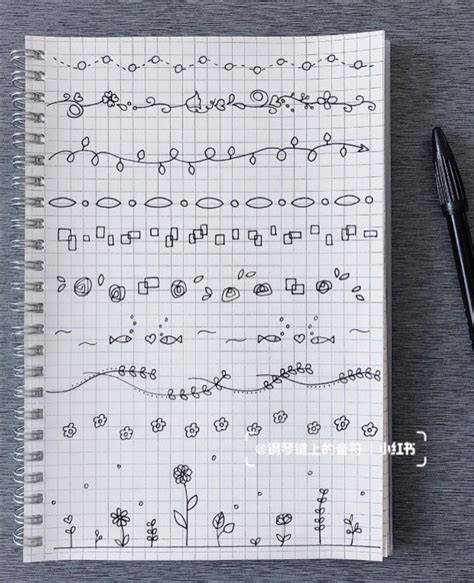 @钢琴键上的音符 小红书